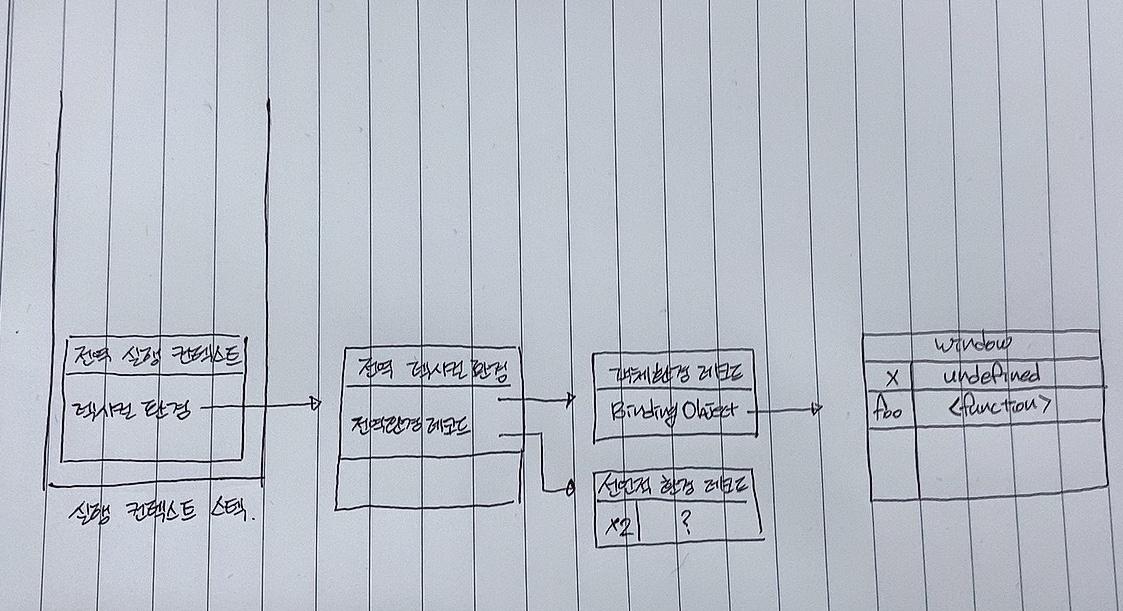 전역 실행 컨텍스트
렉시컬 환경
실행 컨텍스트 스택.
전역 렉시컬 환경
전역환경 레코드
객체환경 레코드
Binding Object
선언적 환경 레코드
x2 ?
window
x undefined
foo <function>